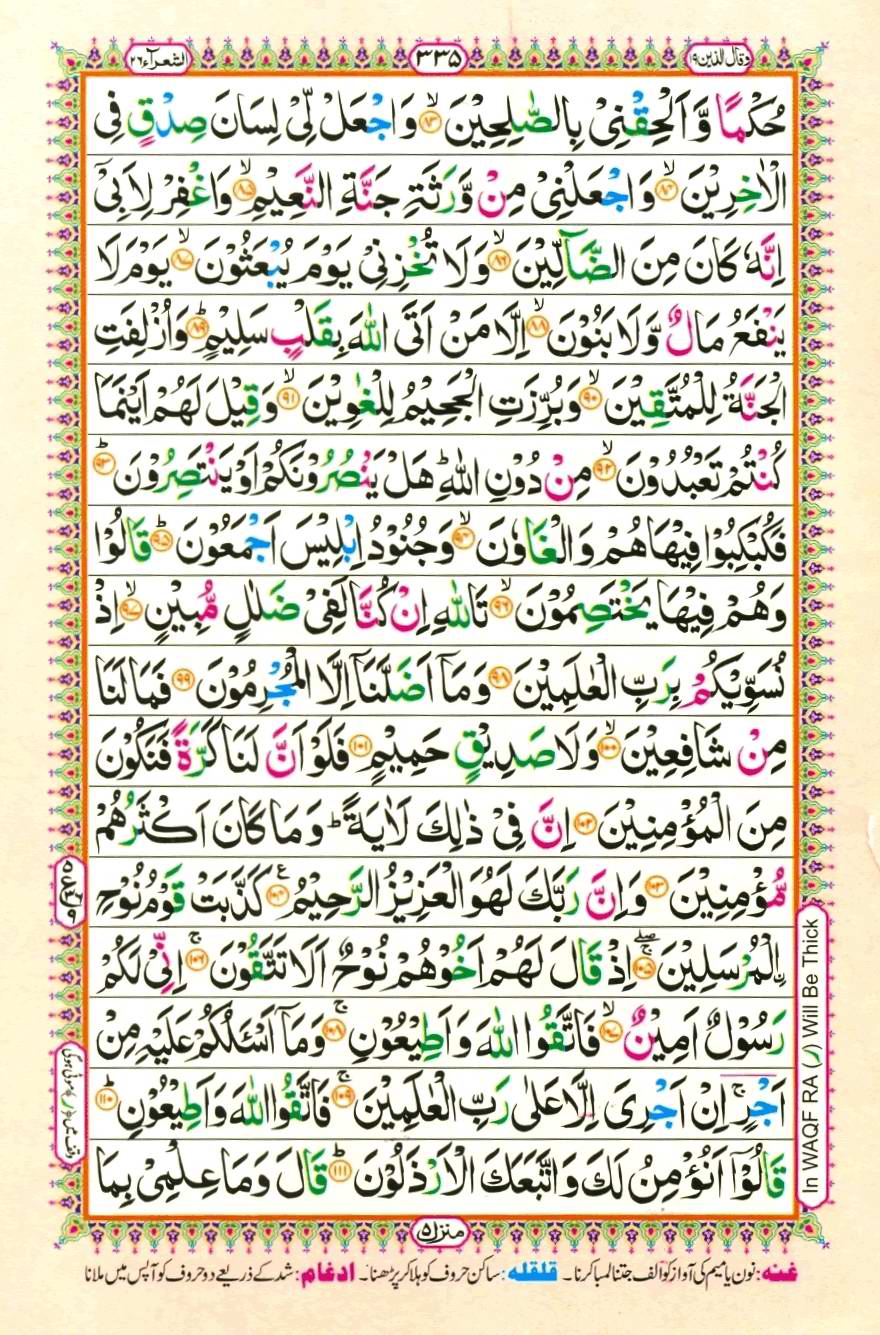 وقال الذين ١٩
٣٣٥
الشعرآء ٢٦
حُكْمًا وَّ اَلْحِقْنِیْ بِالصّٰلِحِیْنَ ۙ﴿۸۳﴾ وَ اجْعَلْ لِّیْ لِسَانَ صِدْقٍ فِی
الْاٰخِرِیْنَ ۙ﴿۸۴﴾ وَ اجْعَلْنِیْ مِنْ وَّرَثَةِ جَنَّةِ النَّعِیْمِ ۙ﴿۸۵﴾ وَ اغْفِرْ لِاَبِیْۤ
اِنَّهٗ كَانَ مِنَ الضَّآلِّیْنَ ۙ﴿۸۶﴾ وَ لَا تُخْزِنِیْ یَوْمَ یُبْعَثُوْنَ ۙ﴿۸۷﴾ یَوْمَ لَا
یَنْفَعُ مَالٌ وَّ لَا بَنُوْنَ ۙ﴿۸۸﴾ اِلَّا مَنْ اَتَی اللّٰهَ بِقَلْبٍ سَلِیْمٍ ؕ﴿۸۹﴾ وَ اُزْلِفَتِ
الْجَنَّةُ لِلْمُتَّقِیْنَ ۙ﴿۹۰﴾ وَ بُرِّزَتِ الْجَحِیْمُ لِلْغٰوِیْنَ ۙ﴿۹۱﴾ وَ قِیْلَ لَهُمْ اَیْنَمَا
كُنْتُمْ تَعْبُدُوْنَ ۙ﴿۹۲﴾ مِنْ دُوْنِ اللّٰهِ ؕ هَلْ یَنْصُرُوْنَكُمْ اَوْ یَنْتَصِرُوْنَ ؕ﴿۹۳﴾
فَكُبْكِبُوْا فِیْهَا هُمْ وَ الْغَاوٗنَ ۙ﴿۹۴﴾ وَ جُنُوْدُ اِبْلِیْسَ اَجْمَعُوْنَ ؕ﴿۹۵﴾ قَالُوْا
وَ هُمْ فِیْهَا یَخْتَصِمُوْنَ ۙ﴿۹۶﴾ تَاللّٰهِ اِنْ كُنَّا لَفِیْ ضَلٰلٍ مُّبِیْنٍ ۙ﴿۹۷﴾ اِذْ
نُسَوِّیْكُمْ بِرَبِّ الْعٰلَمِیْنَ ﴿۹۸﴾ وَ مَاۤ اَضَلَّنَاۤ اِلَّا الْمُجْرِمُوْنَ ﴿۹۹﴾ فَمَا لَنَا
مِنْ شَافِعِیْنَ ۙ﴿۱۰۰﴾ وَ لَا صَدِیْقٍ حَمِیْمٍ ﴿۱۰۱﴾ فَلَوْ اَنَّ لَنَا كَرَّةً فَنَكُوْنَ
مِنَ الْمُؤْمِنِیْنَ ﴿۱۰۲﴾ اِنَّ فِیْ ذٰلِكَ لَاٰیَةً ؕ وَ مَا كَانَ اَكْثَرُهُمْ
مُّؤْمِنِیْنَ ﴿۱۰۳﴾ وَ اِنَّ رَبَّكَ لَهُوَ الْعَزِیْزُ الرَّحِیْمُ ﴿۱۰۴﴾ع كَذَّبَتْ قَوْمُ نُوْحِ
ِ۟الْمُرْسَلِیْنَ ۚۖ﴿۱۰۵﴾ اِذْ قَالَ لَهُمْ اَخُوْهُمْ نُوْحٌ اَلَا تَتَّقُوْنَ ۚ﴿۱۰۶﴾ اِنِّیْ لَكُمْ
رَسُوْلٌ اَمِیْنٌ ۙ﴿۱۰۷﴾ فَاتَّقُوا اللّٰهَ وَ اَطِیْعُوْنِ ۚ﴿۱۰۸﴾ وَ مَاۤ اَسْـَٔلُكُمْ عَلَیْهِ مِنْ
اَجْرٍ ۚ اِنْ اَجْرِیَ اِلَّا عَلٰی رَبِّ الْعٰلَمِیْنَ ۚ﴿۱۰۹﴾ فَاتَّقُوا اللّٰهَ وَ اَطِیْعُوْنِ ؕ﴿۱۱۰﴾
قَالُوْۤا اَنُؤْمِنُ لَكَ وَ اتَّبَعَكَ الْاَرْذَلُوْنَ ؕ﴿۱۱۱﴾ قَالَ وَ مَا عِلْمِیْ بِمَا
In WAQF RA (ر) Will Be Thick
منزل ٥
غنه: نون یا میم کی آواز کو الف جتنا لمبا کرنا۔ قلقله: ساکن حروف کو ہلا کر پڑھنا۔ ادغام: شد کے ذریعے دو حروف کو آپس میں ملانا